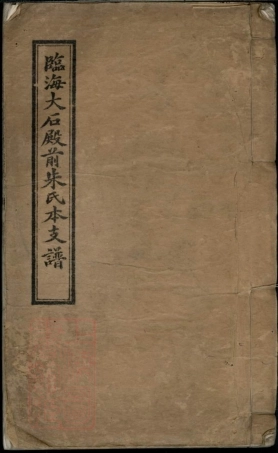 臨海大石殿前朱氏本支譜